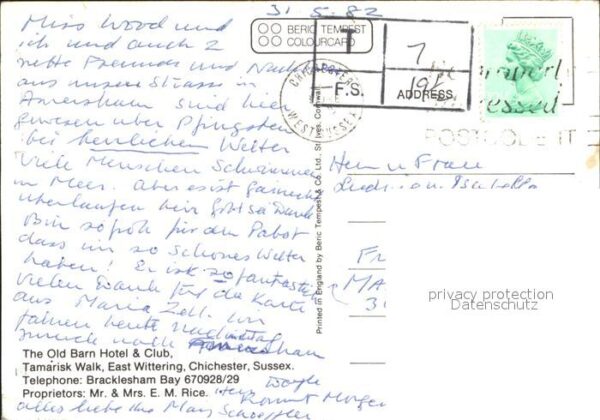 31.5.82
Miss Wood und
ich und auch 2
nette Freunde und Nach
aus unsrer Strasse in
Amersham sind hier
gewesen über Pfingsten
bei herrlichem Wetter
Viele Menschen Schwimmen
im Meer. Aber es ist garnicht
überlaufen hier Gott sei Dank
Bin so froh für den Pabst
dass im so Schönes Wetter
haben! Er ist so fantastisch
vielen Dank für die Karte
aus Maria Zell. Wir
fahren heute Nachmittag
zurück nach Amersham
alles liebe Ihre Mary
kommt Morgen
BERIC TEMPEST
COLOURCARD
T
7
F.S.
ADDRESS
CHICHESTER
WEST SUSSEX
POSTCODE IT
Herr u Frau
Printed in England by Beric Tempest & Co. Ltd., St. Ives, Cornwall
privacy protection
Datenschutz
The Old Barn Hotel & Club,
Tamarisk Walk, East Wittering, Chichester, Sussex.
Telephone: Bracklesham Bay 670928/29
Proprietors: Mr. & Mrs. E. M. Rice.